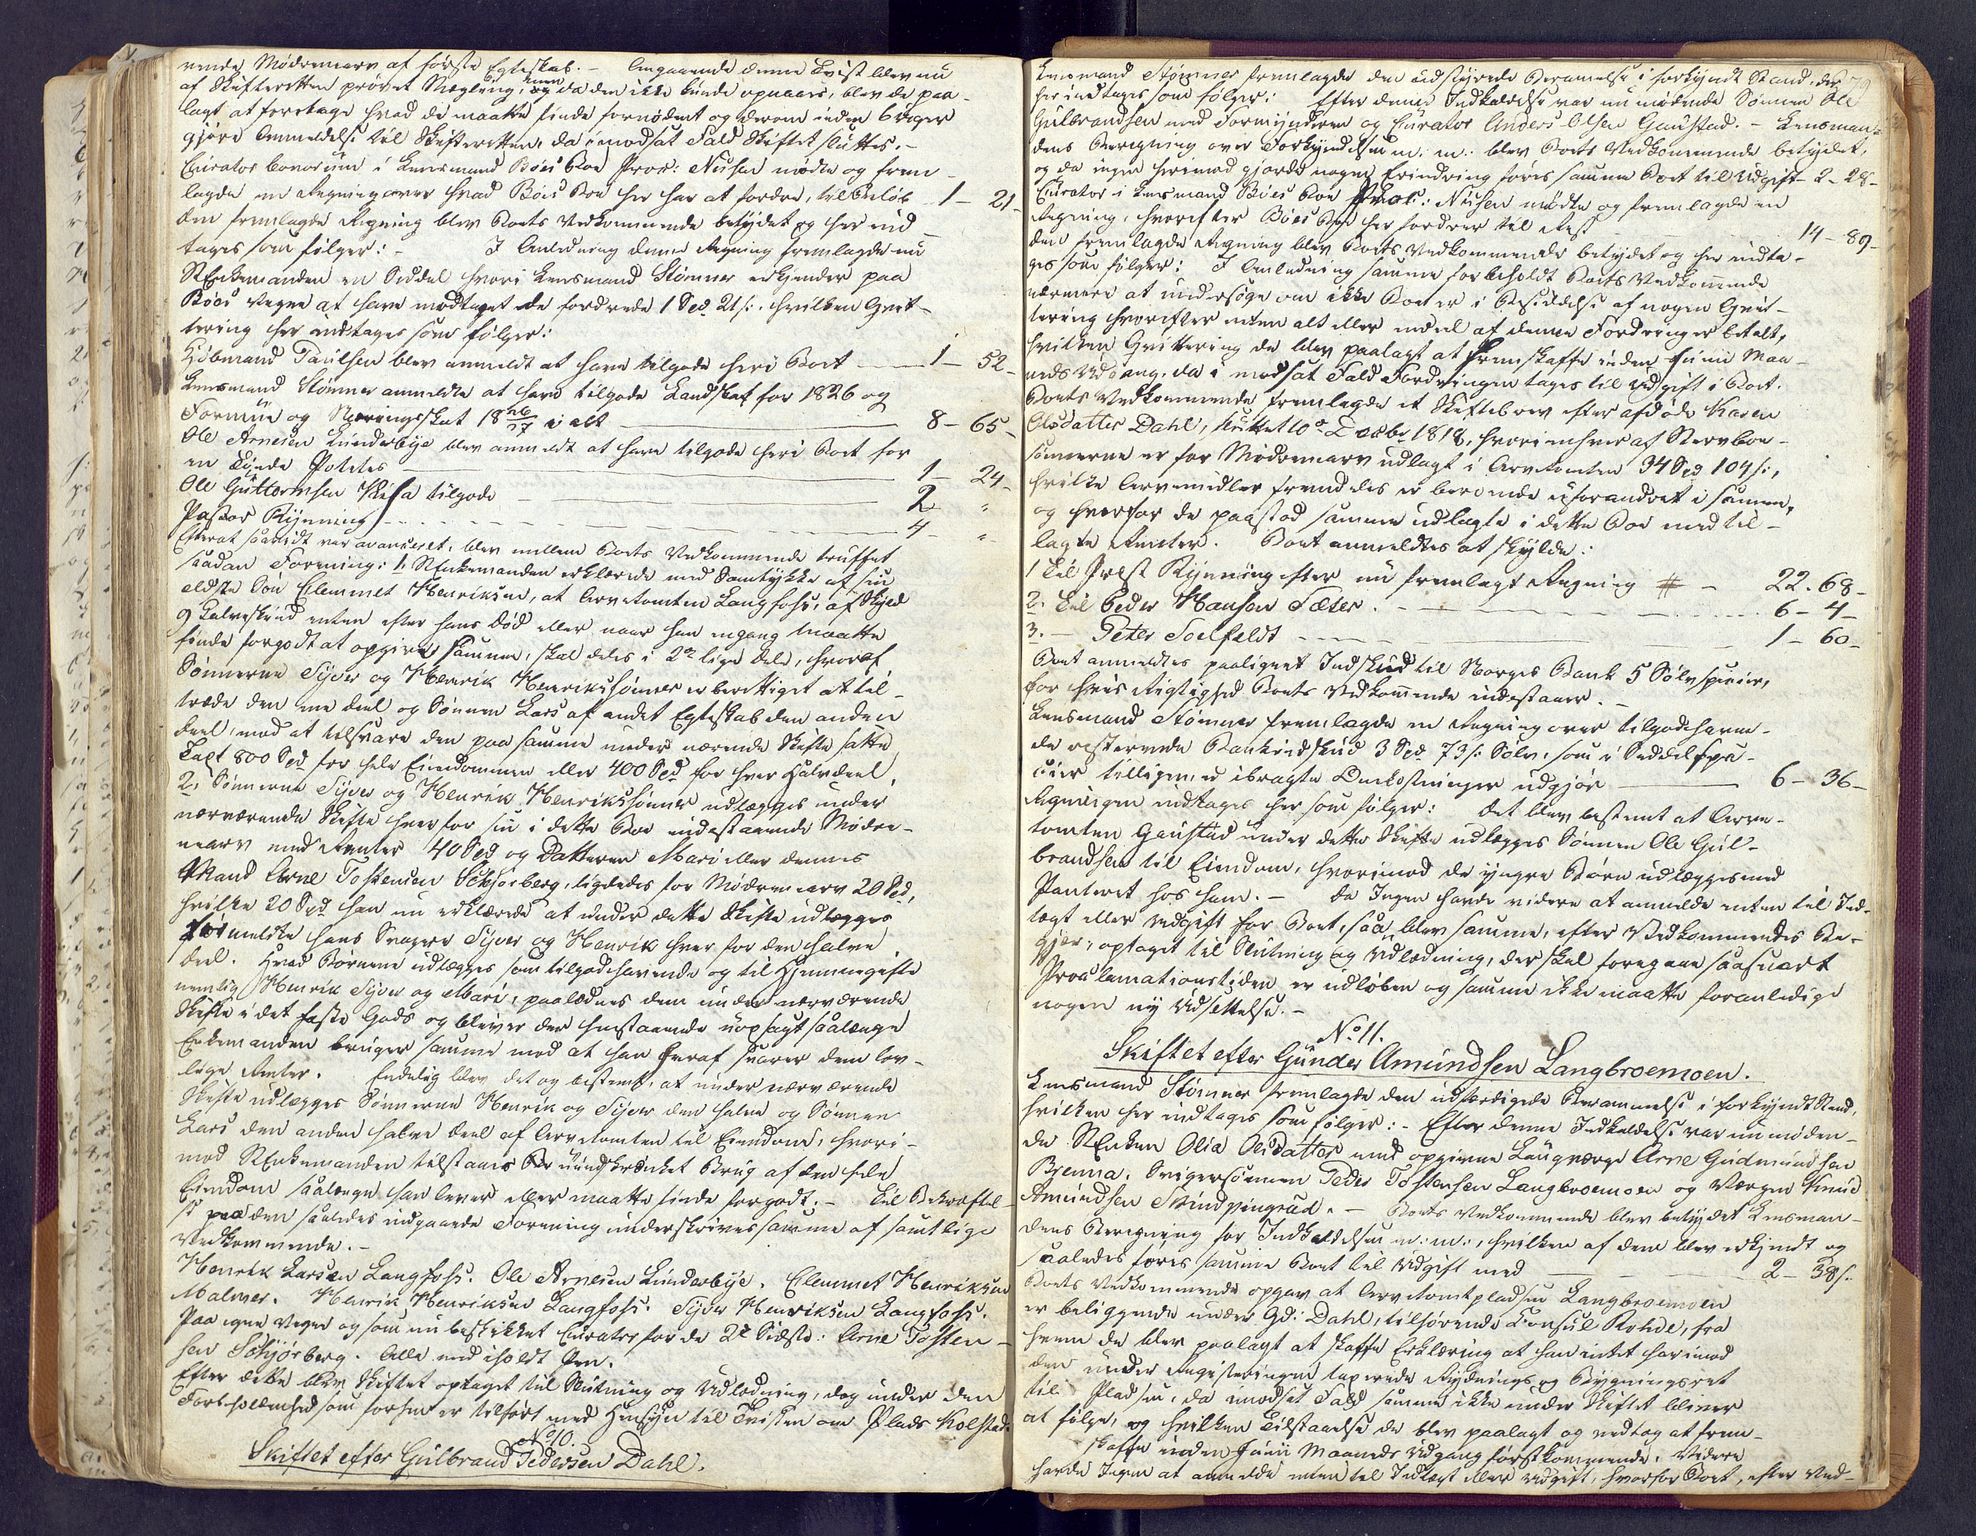 rende Mødrenearv af første Egteskab. - Angaaende denne Tvist blev nu
af Skifteretten prøvet Mægling, men da den ikke kunde opnaaes, blev de paa-
lagt at foretage hvad de maatte finde fornødent og derom inden 6 Uger
gjøre Anmeldelse til Skifteretten, da i modsat Fald Skiftet sluttes. -
Curator bonorum i Lensmand Boies Boe Proc: Nilsen mødte og frem-
lagde en Regning over hvad Boies Boe her har at fordre, til Beløb 1 - 21 -
den fremlagde Regning blev Boets Vedkommende betydet og her ind-
tages som følger: - I Anledning denne Regning fremlagde nu
Enkemanden en Seddel hvori Lensmand Stømner erkjender paa
Boies Vegne at have modtaget de fordrede 1 Spd 21 s: hvilken Qvit-
tering her indtages som følger:
Kjøbmand Paulsen blev anmeldt at have tilgode heri Boet 1 - 52 -
Lensmand Stømner anmeldte at have tilgode Landskat for 1826 og
Formue og Næringsskat 18 26/27 i alt 8 - 65 -
Ole Arnesen Linderbye blev anmeldt at have tilgode heri Boet for
en Tønde Potetes 1 - 24 -
Ole Guttormsen tilgode 2 - "
Pastor Rynning 4 - "
Efterat saavidt var avanceret, blev mellem Boets Vedkommende truffet
saadan Forening: 1, Enkemanden erklærede med Samtykke af sin
ældste Søn Clemmet Henriksen, at Arvetomten Langfoss, af Skyld
9 Kalveskind enten efter hans Død eller naar han engang maatte
finde forgodt at opgive samme, skal deles i 2de lige Dele, hvoraf
Sønnerne Syver og Henrik Henrikssønner er berettiget at til-
træde den ene Deel og Sønnen Lars af andet Egteskab den anden
Deel, mod at tilsvare den paa samme under nærværende Skifte satte
Taxt 800 Spd for hele Eiendommen eller 400 Spd for hver Halvdeel.
2, Sønnerne Syver og Henrik Henrikssønner udlægges under
nærværende Skifte hver for sin i dette Boe indestaaende Mødre-
nearv med Renter 40 Spd og Datteren Mari eller dennes
Mand Arne Tostensen Schjørberg, ligeledes for Mødrenearv 20 Spd,
hvilke 20 Spd han nu erklærede at under dette Skifte udlægges
formeldte hans Svogere Syver og Henrik hver for den halve
Deel. Hvad Børnene udlægges som tilgodehavende og til Hjemmegifte
nemlig Henrik Syver og Mari, paalodnes dem under nærværende
Skifte i det faste Gods og bliver der henstaaende uopsagt saalænge
Enkemanden bruger samme mod at han heraf svarer dem lov-
lige Renter. Endelig blev det og bestemt, at under nærværende
Skifte udlægges Sønnerne Henrik og Syver den halve og Sønnen
Lars den anden halve Deel af Arvetomten til Eiendom, hvori-
mod Enkemanden tilstaaes uindskrænket Brug af den hele
Eiendom saalænge han lever eller maatte finde forgodt. - Til Bekræftel-
se paa den saaledes indgaaende Forening underskrives samme af samtlige
Vedkommende. -
Henrik Larsen Langfoss. Ole Arnesen Linderbye. Clemmet Henriksen
Malmer. Henrik Henriksen Langfoss. Syver Henriksen Langfoss.
Paa egne Vegne og som nu beskikket Curator for de 2de Sidste: Arne Tosten-
sen Schjørberg. Alle med iholdt Pen.
Efter dette blev Skiftet optaget til Slutning og Udlodning, dog under den
Forbeholdenhed som forhen er tilført med Hensyn til Tvisten om Plads Kolstad.
No 10.
Skiftet efter Gulbrand Pedersen Dahl.
79
Lensmand Stømner fremlagde den udstædede Berammelse i forkyndt Stand, der
her indtages som følger: Efter denne Indkaldelse var nu mødende Sønnen Ole
Gulbrandsen med Formynderen og Curator Anders Olsen Gaustad. - Lensman-
dens Beregning over Forkyndelsen m: m: blev Boets Vedkommende betydet,
og da ingen herimod gjorde nogen Erindring føres samme Boet til Udgift - 2 - 28 -
Curator i Lensmand Boies Boe Proc: Nilsen mødte og fremlagde en
Regning, hvorefter Boies Boe her fordrer til Rest 14 - 89 -
den fremlagde Regning blev Boets Vedkommende betydet og her indta-
ges som følger: I Anledning samme forbeholdt Boets Vedkommende
nærmere at undersøge om ikke Boet er i Besiddelse af nogen Qvit-
tering hvorefter enten alt eller endeel af denne Fordring er betalt,
hvilken Qvittering de blev paalagt at fremskaffe inden Junii Maa-
neds Udgang, da i modsat Fald Fordringen tages til Udgift i Boet.
Boets Vedkommende fremlagde et Skiftebrev efter afdøde Karen
Olsdatter Dahl, sluttet 10de Decbr 1818, hvori enhver af Stervboe-
sønnerne er for Mødrenearv udlagt i Arvetomten 34 Spd 104 s:,
hvilke Arvemidler fremdeles er beroende uforandret i samme,
og hvorfor de paastod samme udlagte i dette Boe med til-
lagte Renter. Boet anmeldtes at skylde:
1 Til Præst Rynning efter nu fremlagt Regning # - 22. 68 -
2. Til Peder Hansen Sæter. 6 - 4 -
3. - Peter Soelfeldt 1 - 60 -
Boet anmeldtes paalignet Indskud til Norges Bank 5 Sølvspecier,
for hvis Rigtighed Boets Vedkommende indestaaer. -
Lensmand Stømner fremlagde en Regning over tilgodehaven-
de resterende Bankindskud 3 Spd 73 s: Sølv, som i Seddelspe-
cier tilligemed ibragte Omkostninger udgjør 6 - 36 -
Regningen indtages her som følger: Det blev bestemt at Arve-
tomten Gaustad under dette Skifte udlægges Sønnen Ole Gul-
brandsen til Eiendom, hvorimod de yngre Børn udlægges med
Panteret hos ham. - Da Ingen havde videre at anmelde enten til Ind-
tægt eller Udgift for Boet, saa blev samme, efter Vedkommendes Be-
gjær, optaget til Slutning og Udlodning, der skal foregaae saasnart
Proclamationstiden er udløben og samme ikke maatte foranledige
nogen ny Udsættelse. -
No 11.
Skiftet efter Gunder Amundsen Langbroemoen.
Lensmand Stømner fremlagde den udfærdigede Berammelse i forkyndt Stand,
hvilken her indtages som følger: - Efter denne Indkaldelse var nu møden-
de Enken Olia Olsdatter med opgivne Laugværge Arne Gudmundsen
Brenna, Svigersønnen Peder Tostensen Langbroemoen og Værgen Knud
Amundsen Skindpingrud. - Boets Vedkommende blev betydet Lensman-
dens Beregning for Indkaldelsen m: m:, hvilken af dem blev erkjendt og
saaledes føres samme Boet til Udgift med 2 - 38 s.
Boets Vedkommende opgav at Arvetomtpladsen Langbroemoen
er beliggende under Gd: Dahl, tilhørende Consul Rohde, fra
hvem de blev paalagt at skaffe Erklæring at han intet har imod
den under Registeringen taxerede Rydnings og Bygningsret
til Pladsen, da i modsat Fald samme ikke under Skiftet bliver
at følge, og hvilken Tilstaaelse de blev paalagt og vedtog at frem-
skaffe inden Junii Maaneds Udgang førstkommende. Videre
havde Ingen at anmelde enten til Indtægt eller Udgift, hvorfor Boet, efter Ved-